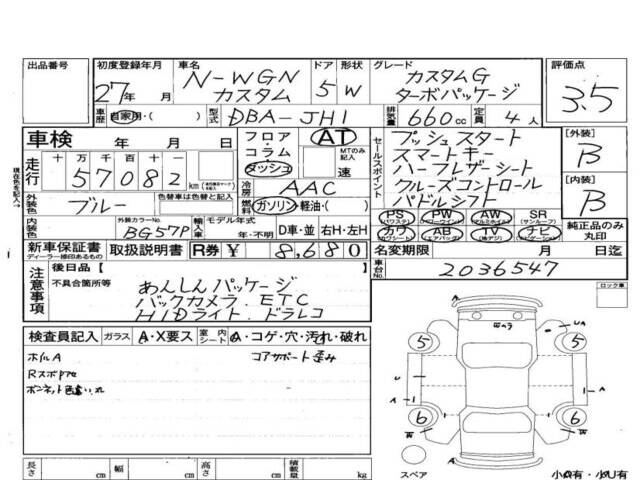 出品番号
初度登録年月 27年 月
車名 N-WGN カスタム
ドア 5
形状 W
グレード カスタムG ターボパッケージ
評価点 3.5
車歴 自家用・( )
型式 DBA-JH1
排気量 660cc
定員 4人
車検 年 月 日
フロア・コラム・ダッシュ
AT
MTのみ記入
速
走行 十 万 千 百 十 一
57082 km
現在色を記入→
外装色 ブルー
色替車は色替と記入
冷房 AAC
燃料 ガソリン・軽油・( )
セールスポイント
プッシュスタート
スマートキー
ハーフレザーシート
クルーズコントロール
パドルシフト
[外装] B
[内装] B
内装色
外装カラーNo. BG57P
輸入車
モデル年式 年・不明
D車・並
右H・左H
PS (パワステ)
PW (パワーウインド)
AW (アルミホイール)
SR (サンルーフ)
カワ (カワシート)
AB (エアバッグ)
TV (地デジ)
ナビ (ナビゲーション)
純正品のみ丸印
新車保証書
ディーラー捺印あるもの
取扱説明書
R券 ¥ 8,680
名変期限 月 日迄
注意事項
後日品【
不具合箇所等
あんしんパッケージ
バックカメラ.ETC
HIDライト.ドラレコ
車台No. 2036547
ロック車
検査員記入
ガラス A・X要ス
室内シート A・コゲ・穴・汚れ・破れ
ホイルA
コアサポート歪み
5
5
6
6
U
A
A
スペア
小A有・小U有
長さ cm
幅 cm
高さ cm
積載量 kg